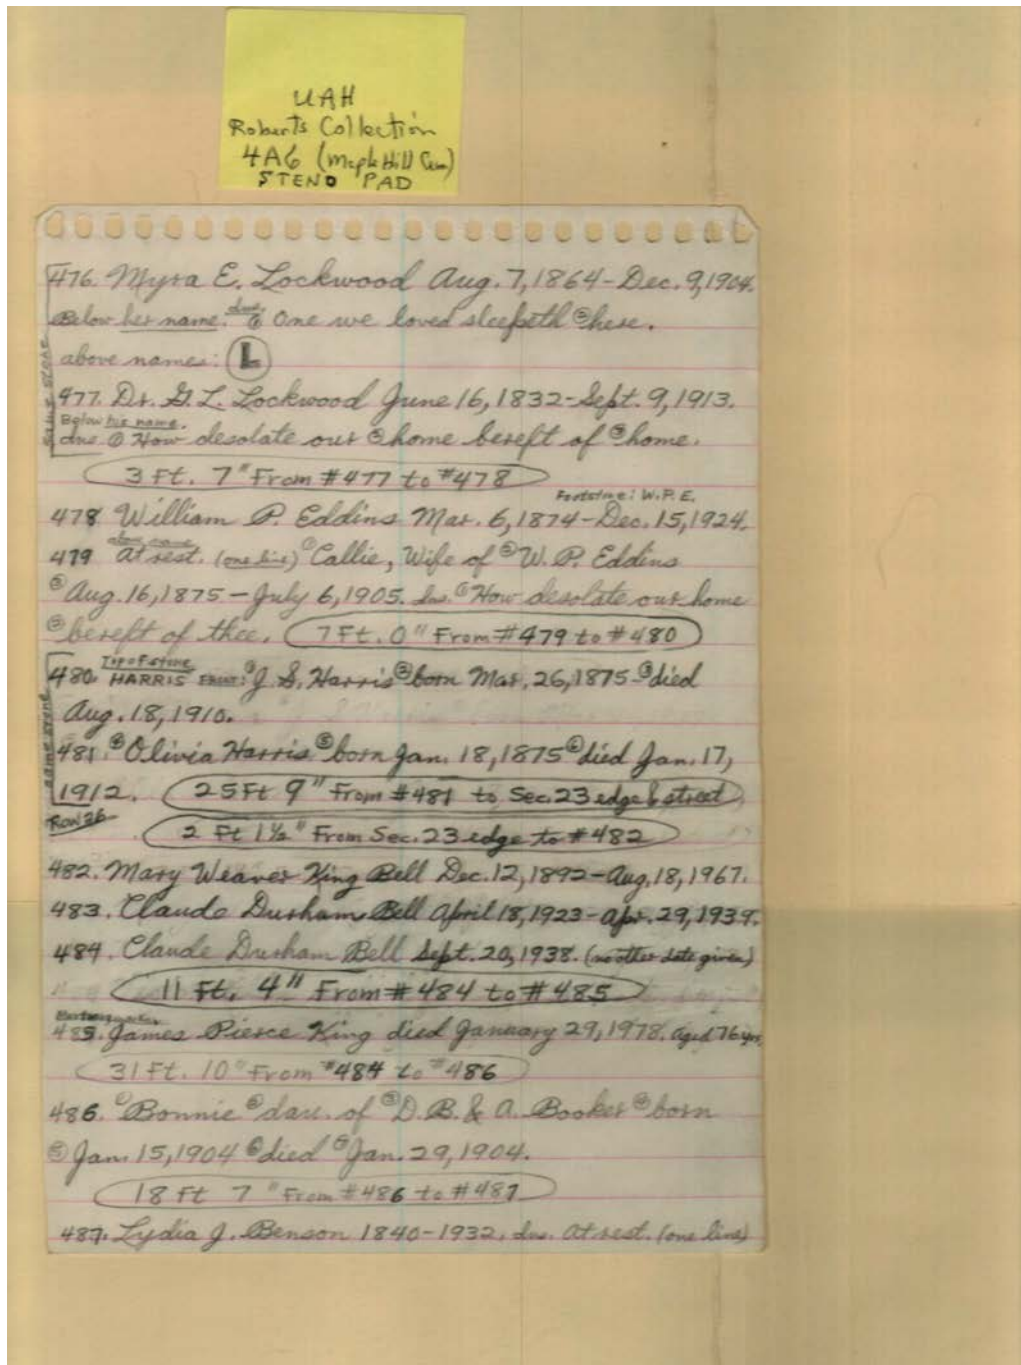 UAH
Roberts Collection
4A6 (Maple Hill Cem)
STENO PAD
476. Myra E. Lockwood Aug. 7, 1864 – Dec. 9, 1904.
Below her name. ins. ① One we loved sleepeth ② here.
above names: L
same stone
477. Dr. G. L. Lockwood June 16, 1832 – Sept. 9, 1913.
Below his name.
ins ① How desolate our ② home bereft of ③ home.
3 Ft. 7" From #477 to #478
Footstone: W.P.E.
478. William P. Eddins Mar. 6, 1874 – Dec. 15, 1924.
above name
479 At rest. (one line) ① Callie, Wife of ② W. P. Eddins
③ Aug. 16, 1875 – July 6, 1905. ins. ① How desolate our home
② bereft of thee. 7 Ft. 0" From #479 to #480
Top of stone
480. HARRIS FRONT: ① J. S. Harris ② born Mar. 26, 1875 – ③ died
Aug. 18, 1910.
same stone
481. ④ Olivia Harris ⑤ born Jan. 18, 1875 ⑥ died Jan. 17,
1912. 25 Ft 9" From #481 to Sec. 23 edge & street
Row 26
2 Ft 1½" From Sec. 23 edge to #482
482. Mary Weaver King Bell Dec. 12, 1892 – Aug. 18, 1967.
483. Claude Durham Bell April 18, 1923 – Apr. 29, 1939.
484. Claude Durham Bell Sept. 20, 1938. (no other date given)
11 Ft. 4" From #484 to #485
485. James Pierce King died January 29, 1978. Aged 76 yrs.
31 Ft. 10" From #484 to #486
486. ① Bonnie ② dau. of ③ D. B. & A. Booker ④ born
⑤ Jan. 15, 1904 ⑥ died ⑦ Jan. 29, 1904.
18 Ft 7" From #486 to #487
487. Lydia J. Benson 1840 – 1932. ins. At rest. (one line)